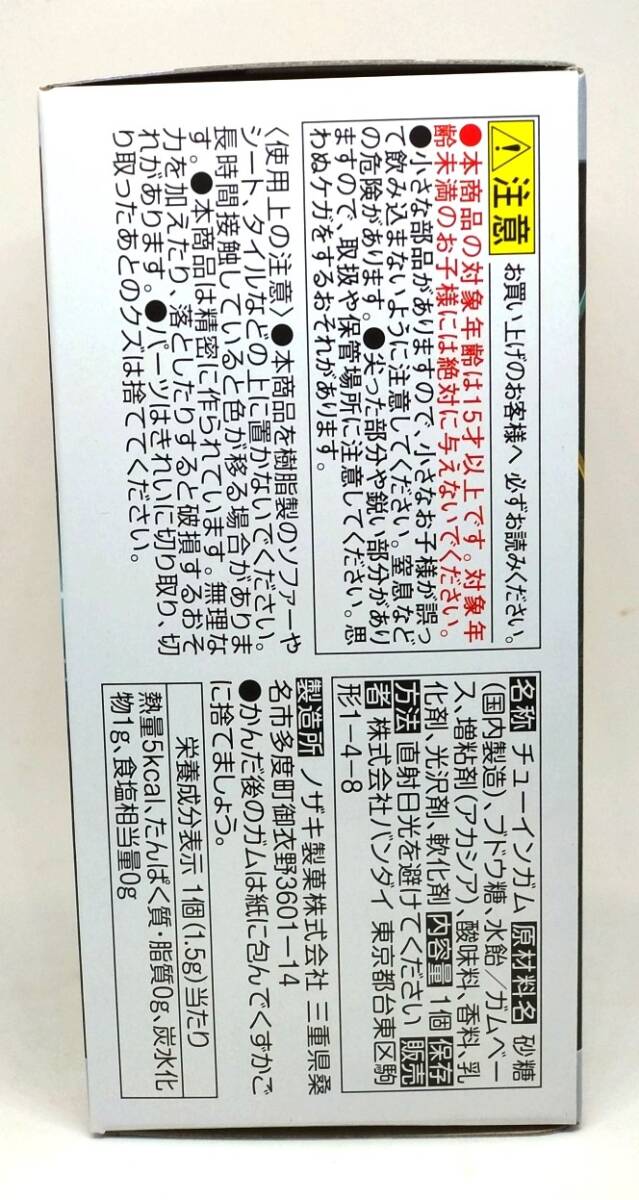 注意
お買い上げのお客様へ 必ずお読みください。
●本商品の対象年齢は15才以上です。対象年
齢未満のお子様には絶対に与えないでください。
●小さな部品がありますので、小さなお子様が誤っ
て飲み込まないように注意してください。窒息など
の危険があります。●尖った部分や鋭い部分があり
ますので、取扱や保管場所に注意してください。思
わぬケガをするおそれがあります。
〈使用上の注意〉●本商品を樹脂製のソファーや
シート、タイルなどの上に置かないでください。
長時間接触していると色が移る場合がありま
す。●本商品は精密に作られています。無理な
力を加えたり、落としたりすると破損するおそ
れがあります。●パーツはきれいに切り取り、切
り取ったあとのクズは捨ててください。
名称 チューインガム 原材料名 砂糖
(国内製造)、ブドウ糖、水飴／ガムベー
ス、増粘剤(アカシア)、酸味料、香料、乳
化剤、光沢剤、軟化剤 内容量 1個 保存
方法 直射日光を避けてください 販売
者 株式会社バンダイ 東京都台東区駒
形1-4-8
製造所 ノザキ製菓株式会社 三重県桑
名市多度町御衣野3601-14
●かんだ後のガムは紙に包んでくずかご
に捨てましょう。
栄養成分表示 1個(1.5g)当たり
熱量5kcal、たんぱく質・脂質0g、炭水化
物1g、食塩相当量0g